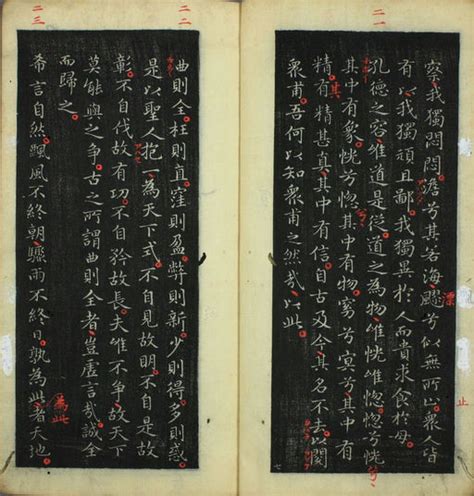 二一
察我獨悶悶澹兮其若海飂兮似無所止衆人皆
漂
有以我獨頑且鄙我獨異於人而貴求食於母
孔德之容惟道是從道之為物惟恍惟惚惚兮恍
兮
其中有象恍兮其中有物窈兮冥兮其中有
其
精有精甚真其中有信自古及今其名不去以閱
衆甫吾何以知衆甫之然哉以此
止
七
二二
曲則全枉則直窪則盈弊則新少則得多則惑
是以聖人抱一為天下式不自見故明不自是故
彰不自伐故有功不自矜故長夫惟不爭故天下
莫能與之爭古之所謂曲則全者豈虛言哉誠全
而歸之
二三
希言自然飄風不終朝驟雨不終日孰為此者天地
為此